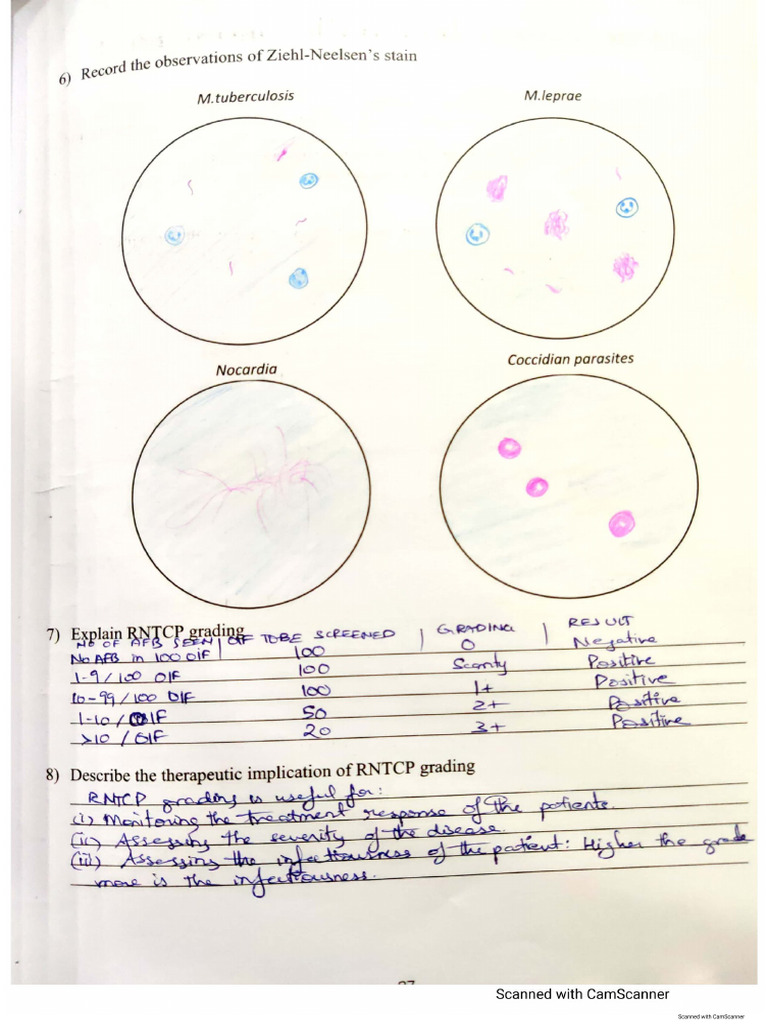 6) Record the observations of Ziehl-Neelsen's stain
M.tuberculosis
M.leprae
Nocardia
Coccidian parasites
7) Explain RNTCP grading
NO OF AFB SEEN | OIF TO BE SCREENED | GRADING | RESULT
No AFB in 100 OIF 100 0 Negative
1-9/100 OIF 100 Scanty Positive
10-99/100 OIF 100 1+ Positive
1-10/OIF 50 2+ Positive
>10/OIF 20 3+ Positive
8) Describe the therapeutic implication of RNTCP grading
RNTCP grading is useful for:
(i) Monitoring the treatment response of the patients.
(ii) Assessing the severity of the disease.
(iii) Assessing the infectiousness of the patient: Higher the grade
more is the infectiousness.
Scanned with CamScanner
Scanned with CamScanner